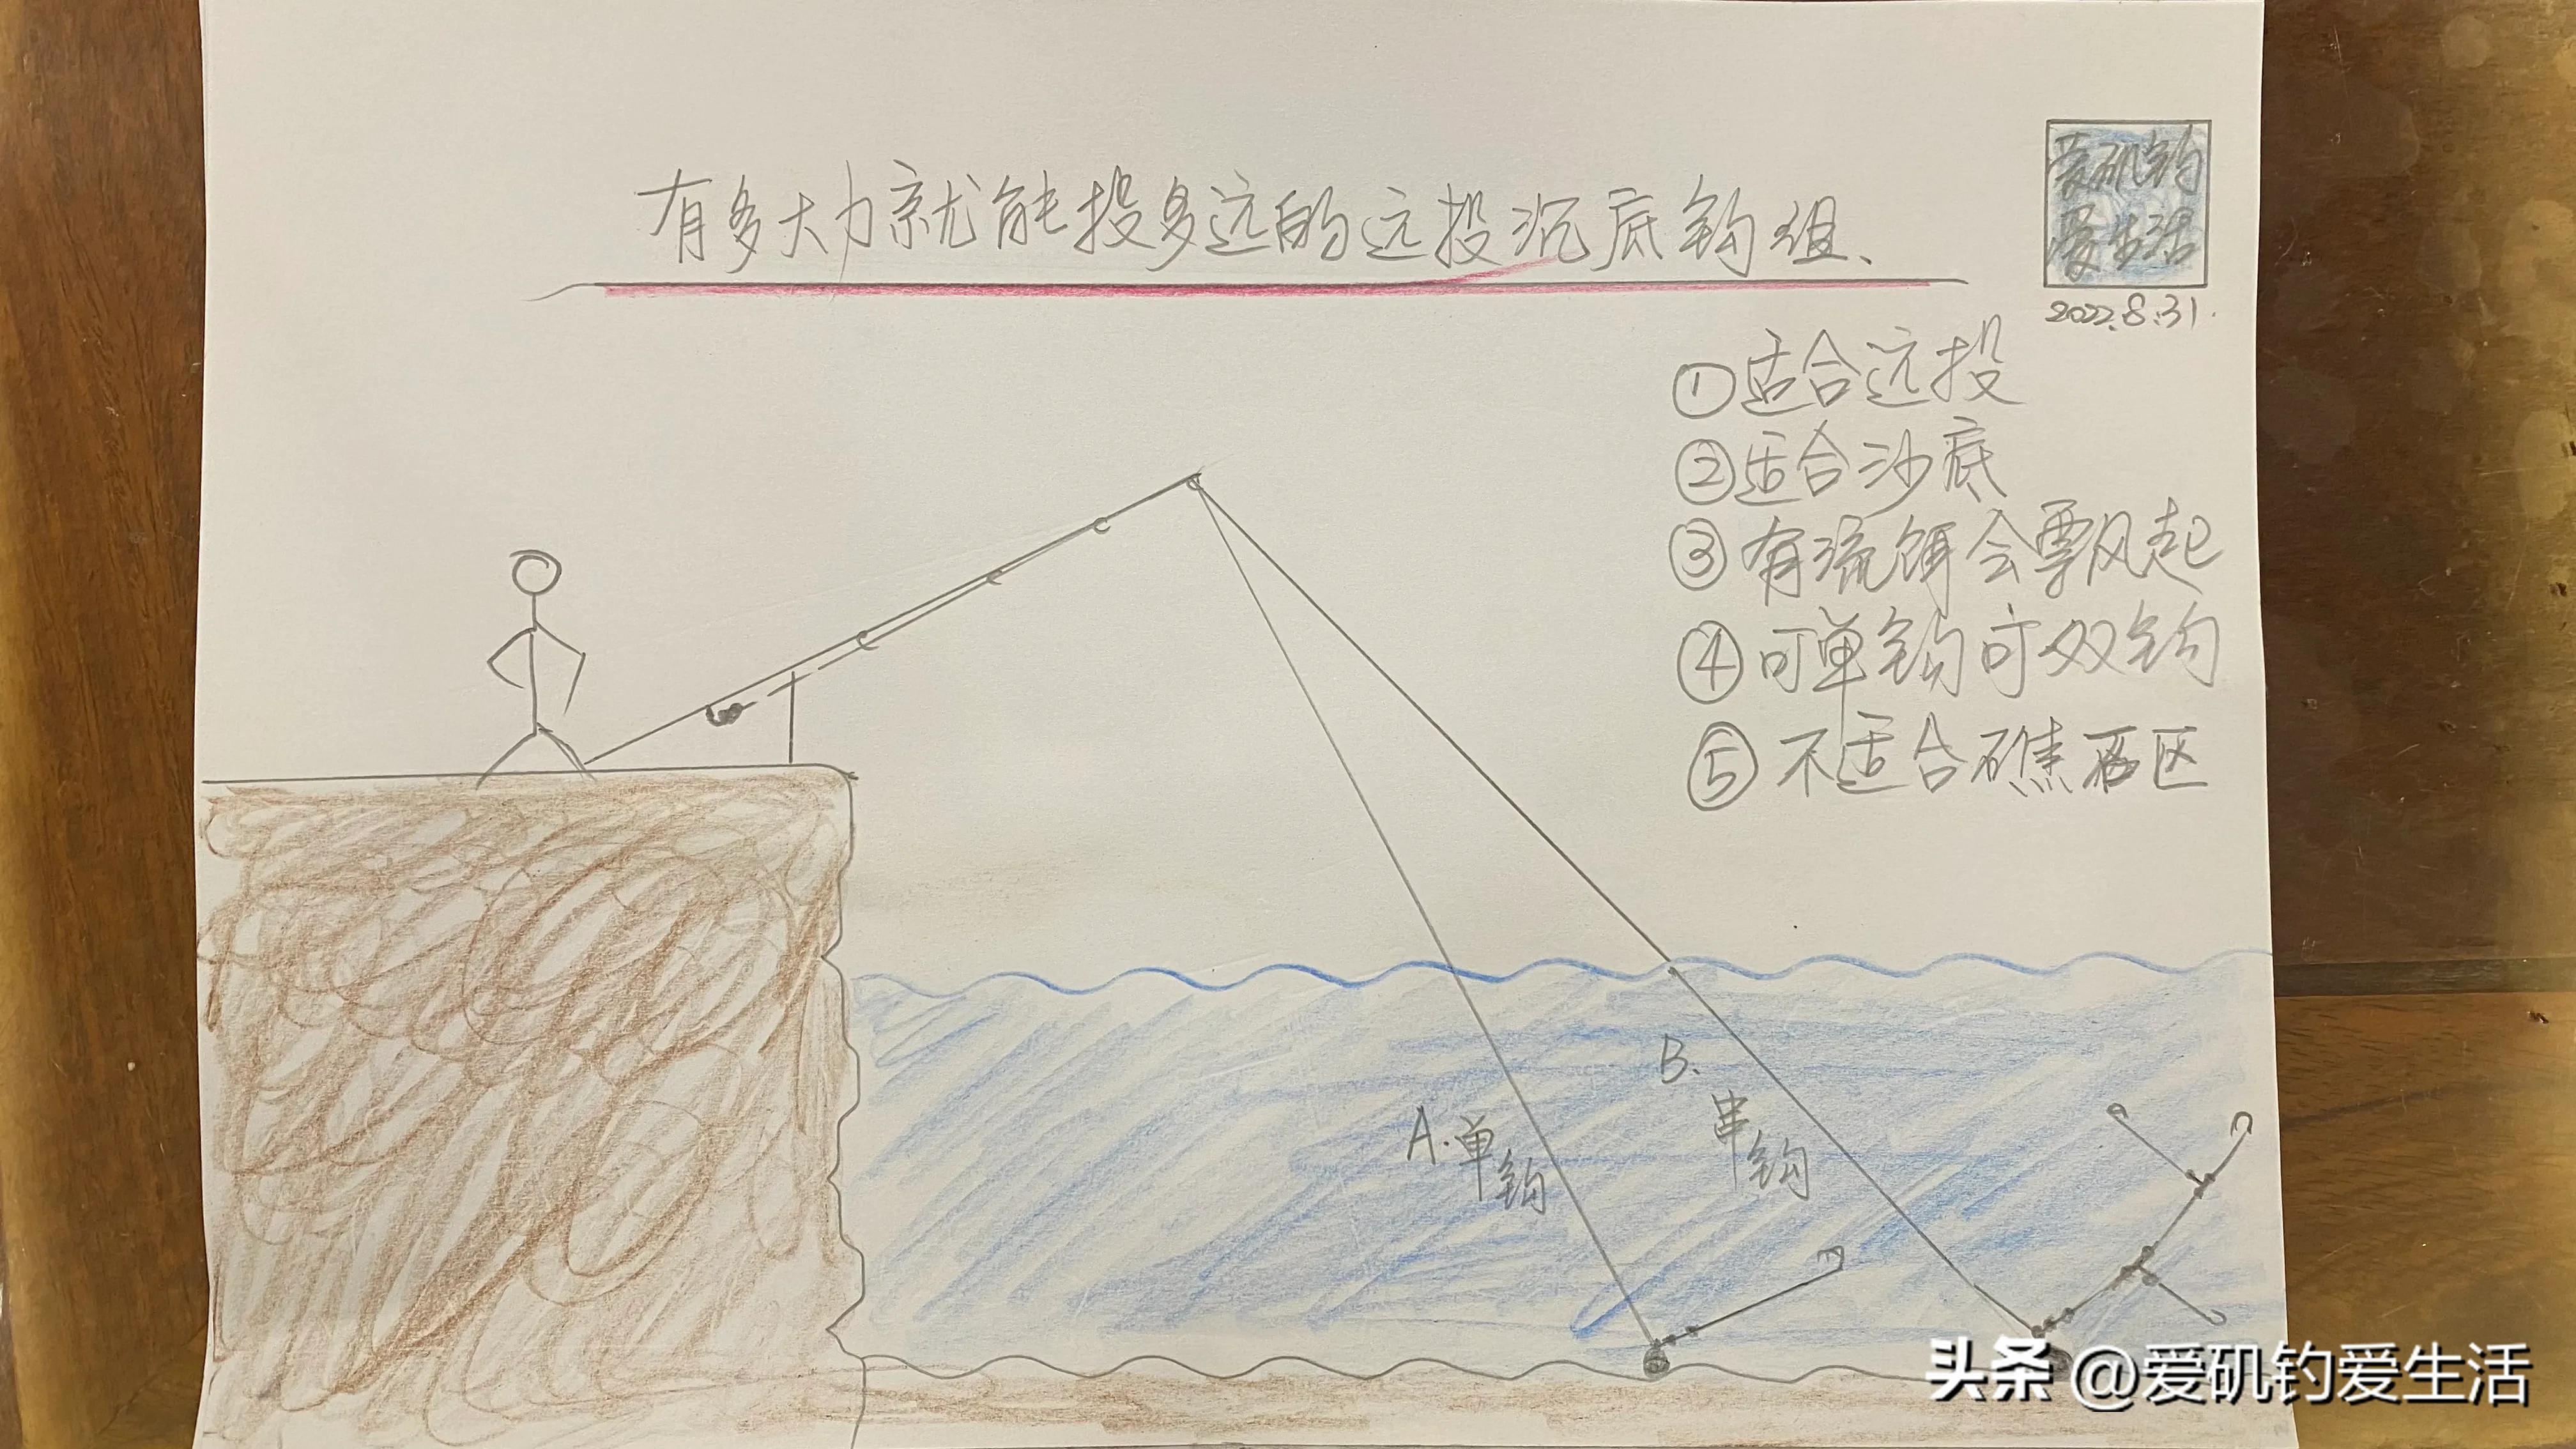 有多大力就能投多远的远投沉底钩组、
爱矶钓
爱生活
2022.8.31.
①适合远投
②适合沙底
③有流饵会飘起
④可单钩可双钩
⑤不适合礁石区
A.单钩
B.串钩
头条 @爱矶钓爱生活